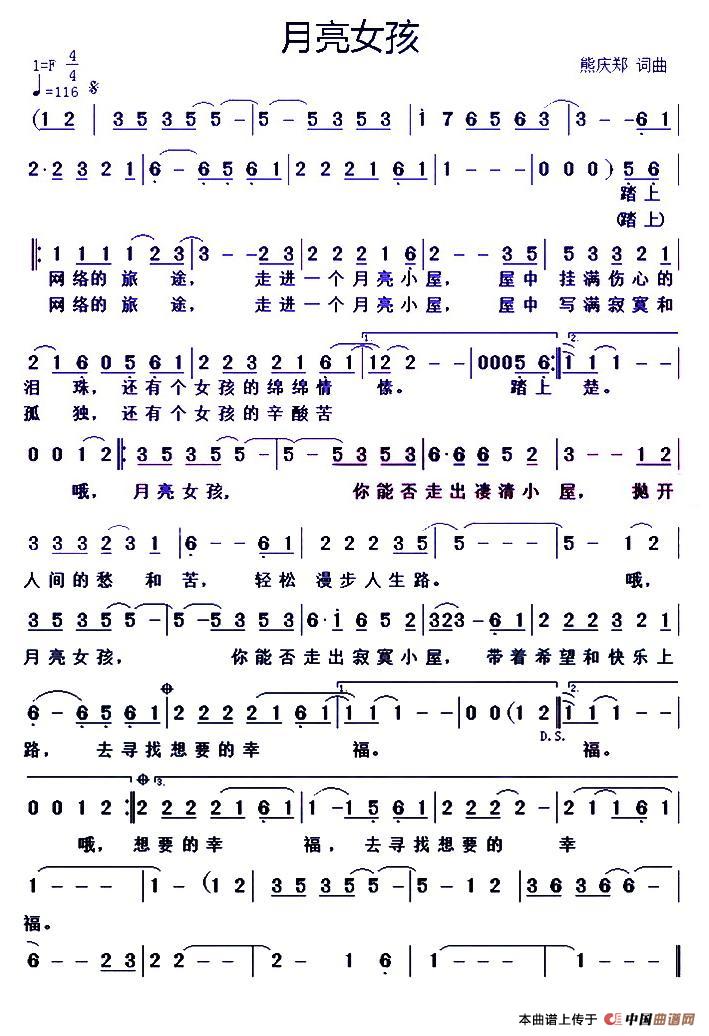 月亮女孩
1=F 4/4
熊庆郑 词曲
♩=116 𝄋
(1 2 | 3 5 3 5 5 - | 5 - 5 3 5 3 | i 7 6 5 6 3 | 3 - - 6 1 |
2· 2 3 2 1 | 6 - 6 5 6 1 | 2 2 2 1 6 1 | 1 - - - | 0 0 0 ) 5 6 |
踏上
(踏上)
‖: 1 1 1 1 2 3 | 3 - - 2 3 | 2 2 2 2 1 6 | 2 - - 3 5 | 5 3 3 2 1 |
网络的旅途，走进一个月亮小屋，屋中挂满伤心的
网络的旅途，走进一个月亮小屋，屋中写满寂寞和
1. 2.
2 1 6 0 5 6 1 | 2 2 3 2 1 6 1 | 1 2 2 - - | 0 0 0 5 6 :‖ 1 1 - - |
泪珠，还有个女孩的绵绵情愫。踏上楚。
孤独，还有个女孩的辛酸苦
0 0 1 2 ‖: 3 5 3 5 5 - | 5 - 5 3 5 3 | 6· 6 6 5 2 | 3 - - 1 2 |
哦，月亮女孩，你能否走出凄清小屋，抛开
3 3 3 2 3 1 | 6 - - 6 1 | 2 2 2 2 3 5 | 5 - - - | 5 - 1 2 |
人间的愁和苦，轻松漫步人生路。哦，
3 5 3 5 5 - | 5 - 5 3 5 3 | 6· i 6 5 2 | 3 2 3 - 6 1 | 2 2 2 3 2 1 |
月亮女孩，你能否走出寂寞小屋，带着希望和快乐上
1. 2.
6 - 6 5 6 1 | 2 2 2 2 1 6 1 | 1 1 - - | 0 0 (1 2 :‖ 1 1 - - |
D.S.
路，去寻找想要的幸福。福。
3.
0 0 1 2 :‖ 2 2 2 2 1 6 1 | 1 - 1 5 6 1 | 2 2 2 - | 2 1 6 1 |
哦，想要的幸福，去寻找想要的幸
1 - - - | 1 - (1 2 | 3 5 3 5 5 - | 5 - 5 6 1 2 | 3 6 3 6 6 - |
福。
6 - - 2 3 | 2 2 - - | 2 - 1 6 | 1 - - - | 1 - - - ‖
本曲谱上传于 中国曲谱网